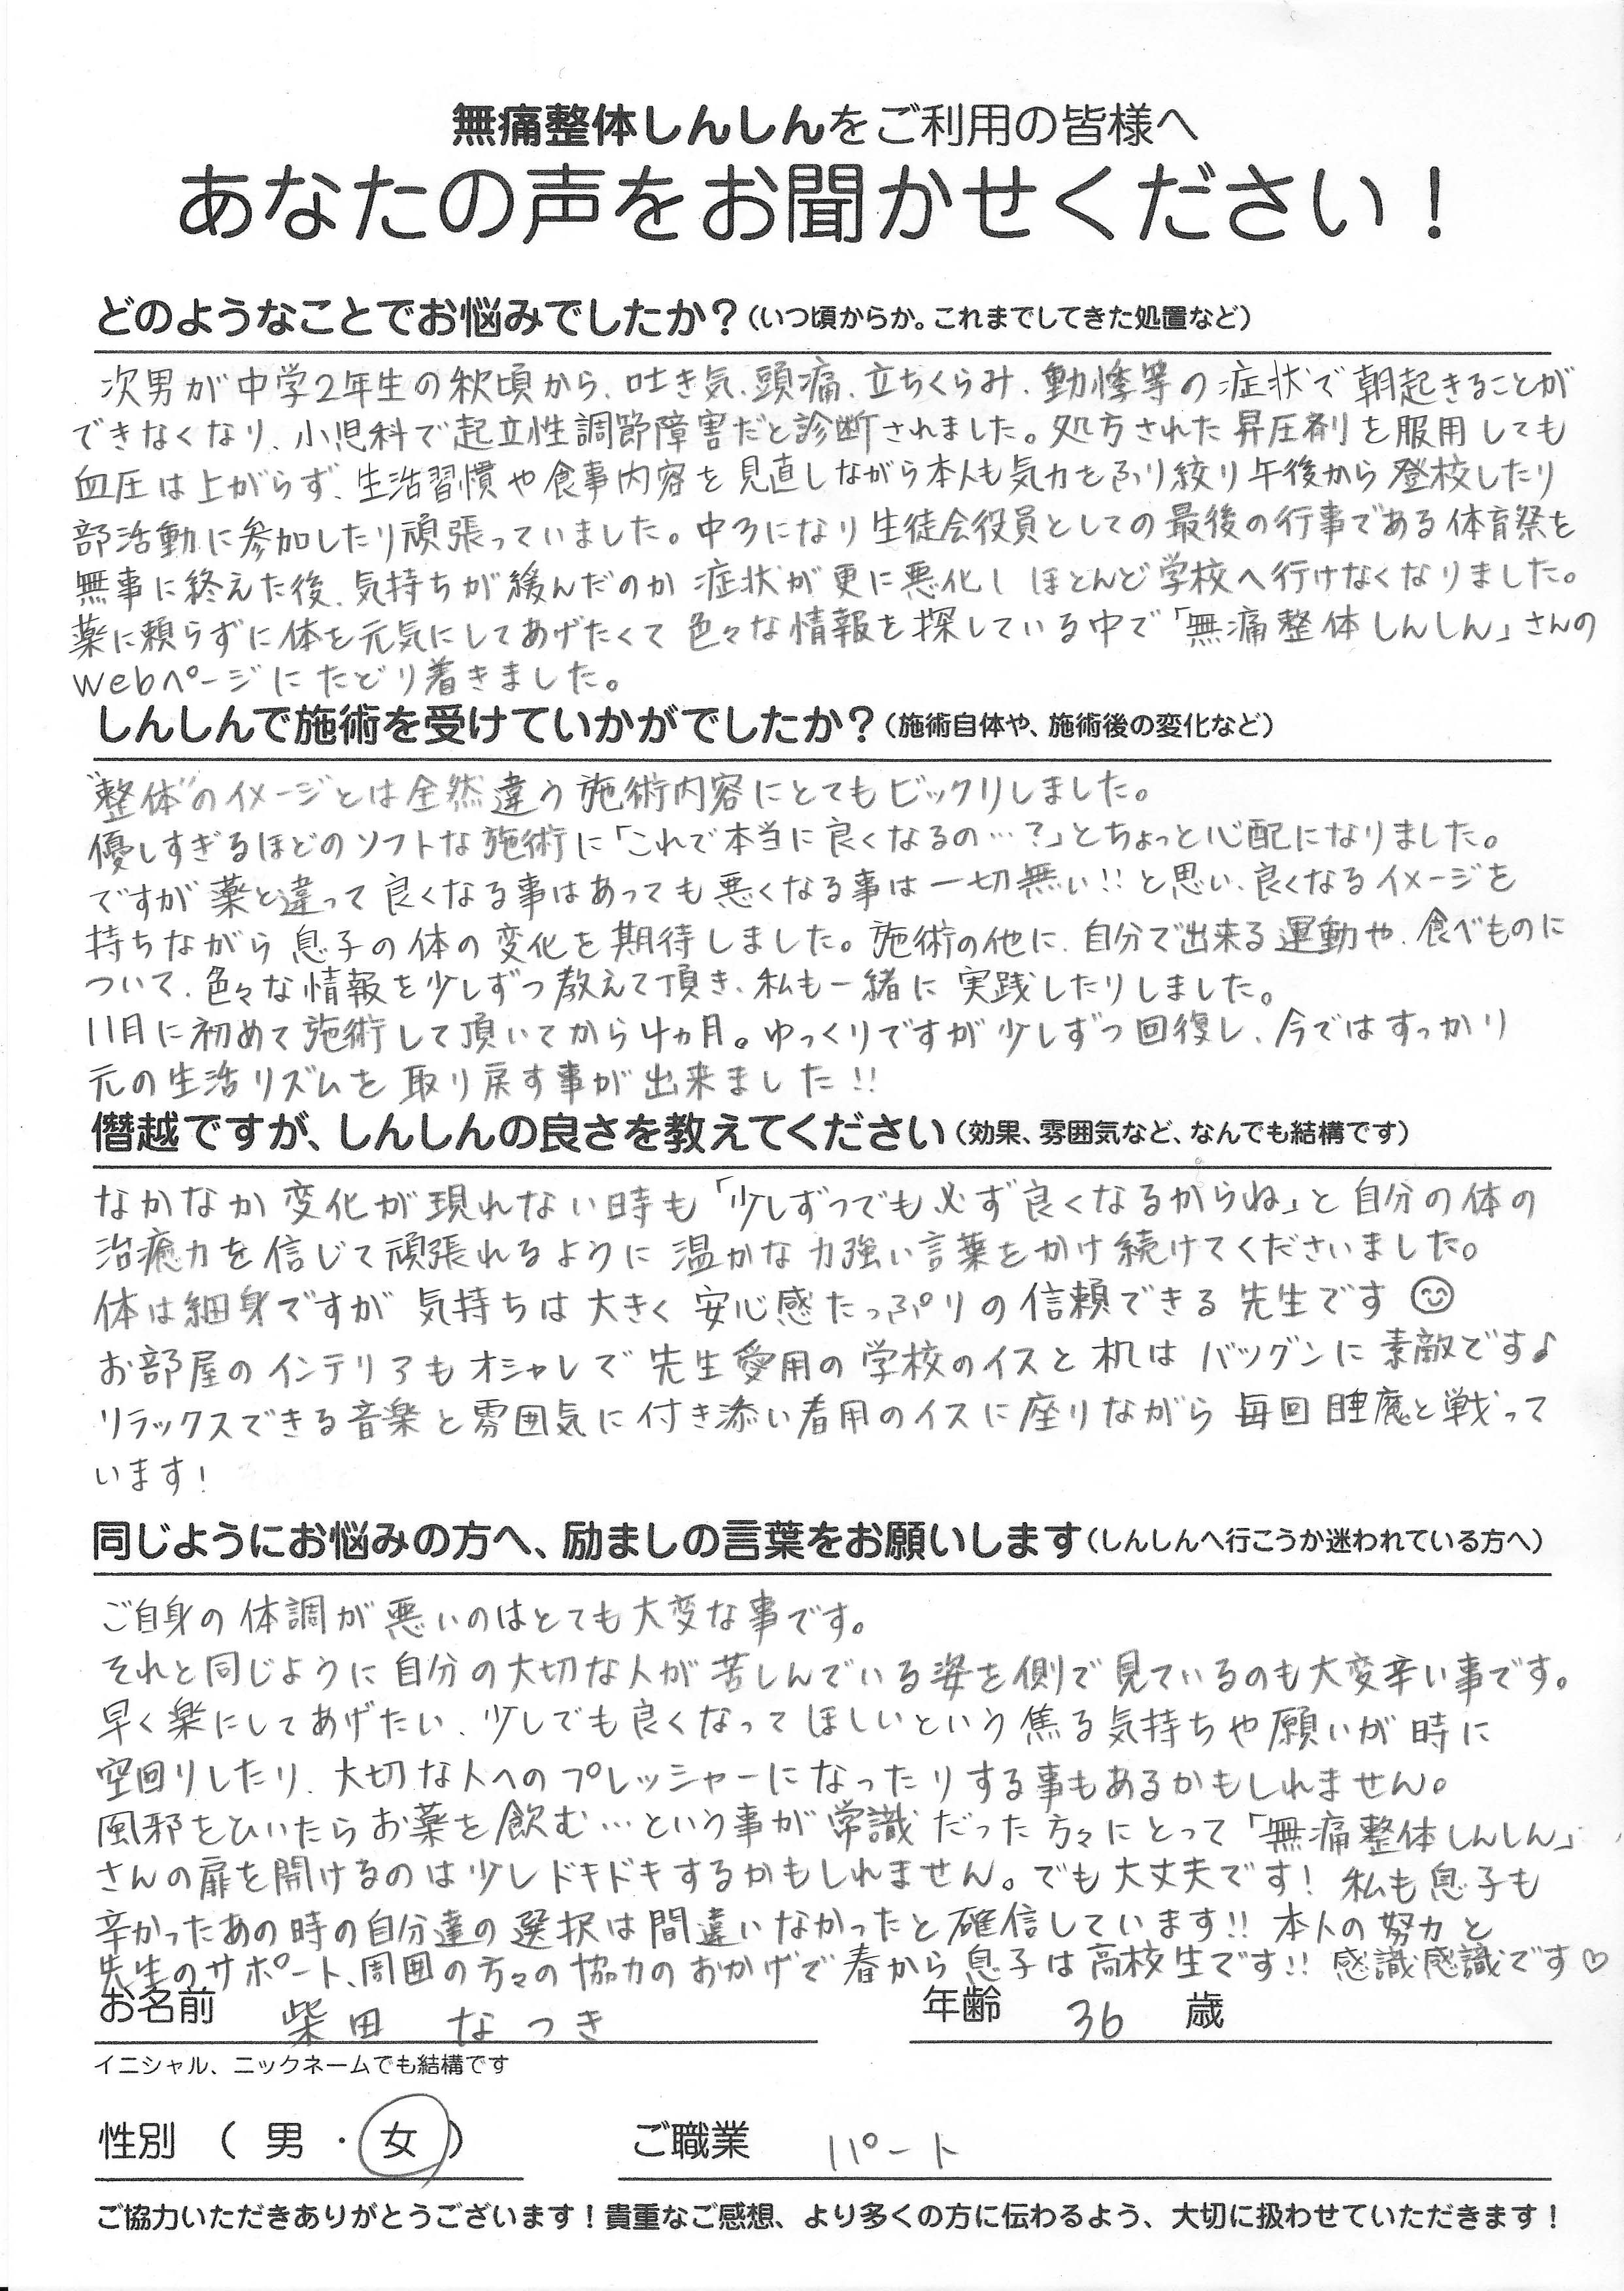 無痛整体しんしんをご利用の皆様へ
あなたの声をお聞かせください！
どのようなことでお悩みでしたか？（いつ頃からか。これまでしてきた処置など）
次男が中学2年生の秋頃から、吐き気、頭痛、立ちくらみ、動悸等の症状で朝起きることが
できなくなり、小児科で起立性調節障害だと診断されました。処方された昇圧剤を服用しても
血圧は上がらず、生活習慣や食事内容を見直しながら本人も気力をふり絞り午後から登校したり
部活動に参加したり頑張っていました。中3になり生徒会役員としての最後の行事である体育祭を
無事に終えた後、気持ちが緩んだのか症状が更に悪化しほとんど学校へ行けなくなりました。
薬に頼らずに体を元気にしてあげたくて色々な情報を探している中で「無痛整体しんしん」さんの
Webページにたどり着きました。
しんしんで施術を受けていかがでしたか？（施術自体や、施術後の変化など）
"整体"のイメージとは全然違う施術内容にとてもビックリしました。
優しすぎるほどのソフトな施術に「これで本当に良くなるの…？」とちょっと心配になりました。
ですが薬と違って良くなる事はあっても悪くなる事は一切無い!!と思い、良くなるイメージを
持ちながら息子の体の変化を期待しました。施術の他に、自分で出来る運動や、食べものに
ついて、色々な情報を少しずつ教えて頂き、私も一緒に実践したりしました。
11月に初めて施術して頂いてから4ヵ月。ゆっくりですが少しずつ回復し、今ではすっかり
元の生活リズムを取り戻す事が出来ました!!
僭越ですが、しんしんの良さを教えてください（効果、雰囲気など、なんでも結構です）
なかなか変化が現れない時も「少しずつでも必ず良くなるからね」と自分の体の
治癒力を信じて頑張れるように温かな力強い言葉をかけ続けてくださいました。
体は細身ですが気持ちは大きく安心感たっぷりの信頼できる先生です😊
お部屋のインテリアもオシャレで先生愛用の学校のイスと机はバツグンに素敵です♪
リラックスできる音楽と雰囲気に付き添い者用のイスに座りながら毎回睡魔と戦って
います!
同じようにお悩みの方へ、励ましの言葉をお願いします（しんしんへ行こうか迷われている方へ）
ご自身の体調が悪いのはとても大変な事です。
それと同じように自分の大切な人が苦しんでいる姿を側で見ているのも大変辛い事です。
早く楽にしてあげたい、少しでも良くなってほしいという焦る気持ちや願いが時に
空回りしたり、大切な人へのプレッシャーになったりする事もあるかもしれません。
風邪をひいたらお薬を飲む…という事が常識だった方々にとって「無痛整体しんしん」
さんの扉を開けるのは少しドキドキするかもしれません。でも大丈夫です!私も息子も
辛かったあの時の自分達の選択は間違いなかったと確信しています!!本人の努力と
先生のサポート、周囲の方々の協力のおかげで春から息子は高校生です!!感識感識です♡
お名前 柴田 なつき 年齢 36 歳
イニシャル、ニックネームでも結構です
性別 （ 男 ・ 女 ） ご職業 パート
ご協力いただきありがとうございます！貴重なご感想、より多くの方に伝わるよう、大切に扱わせていただきます！